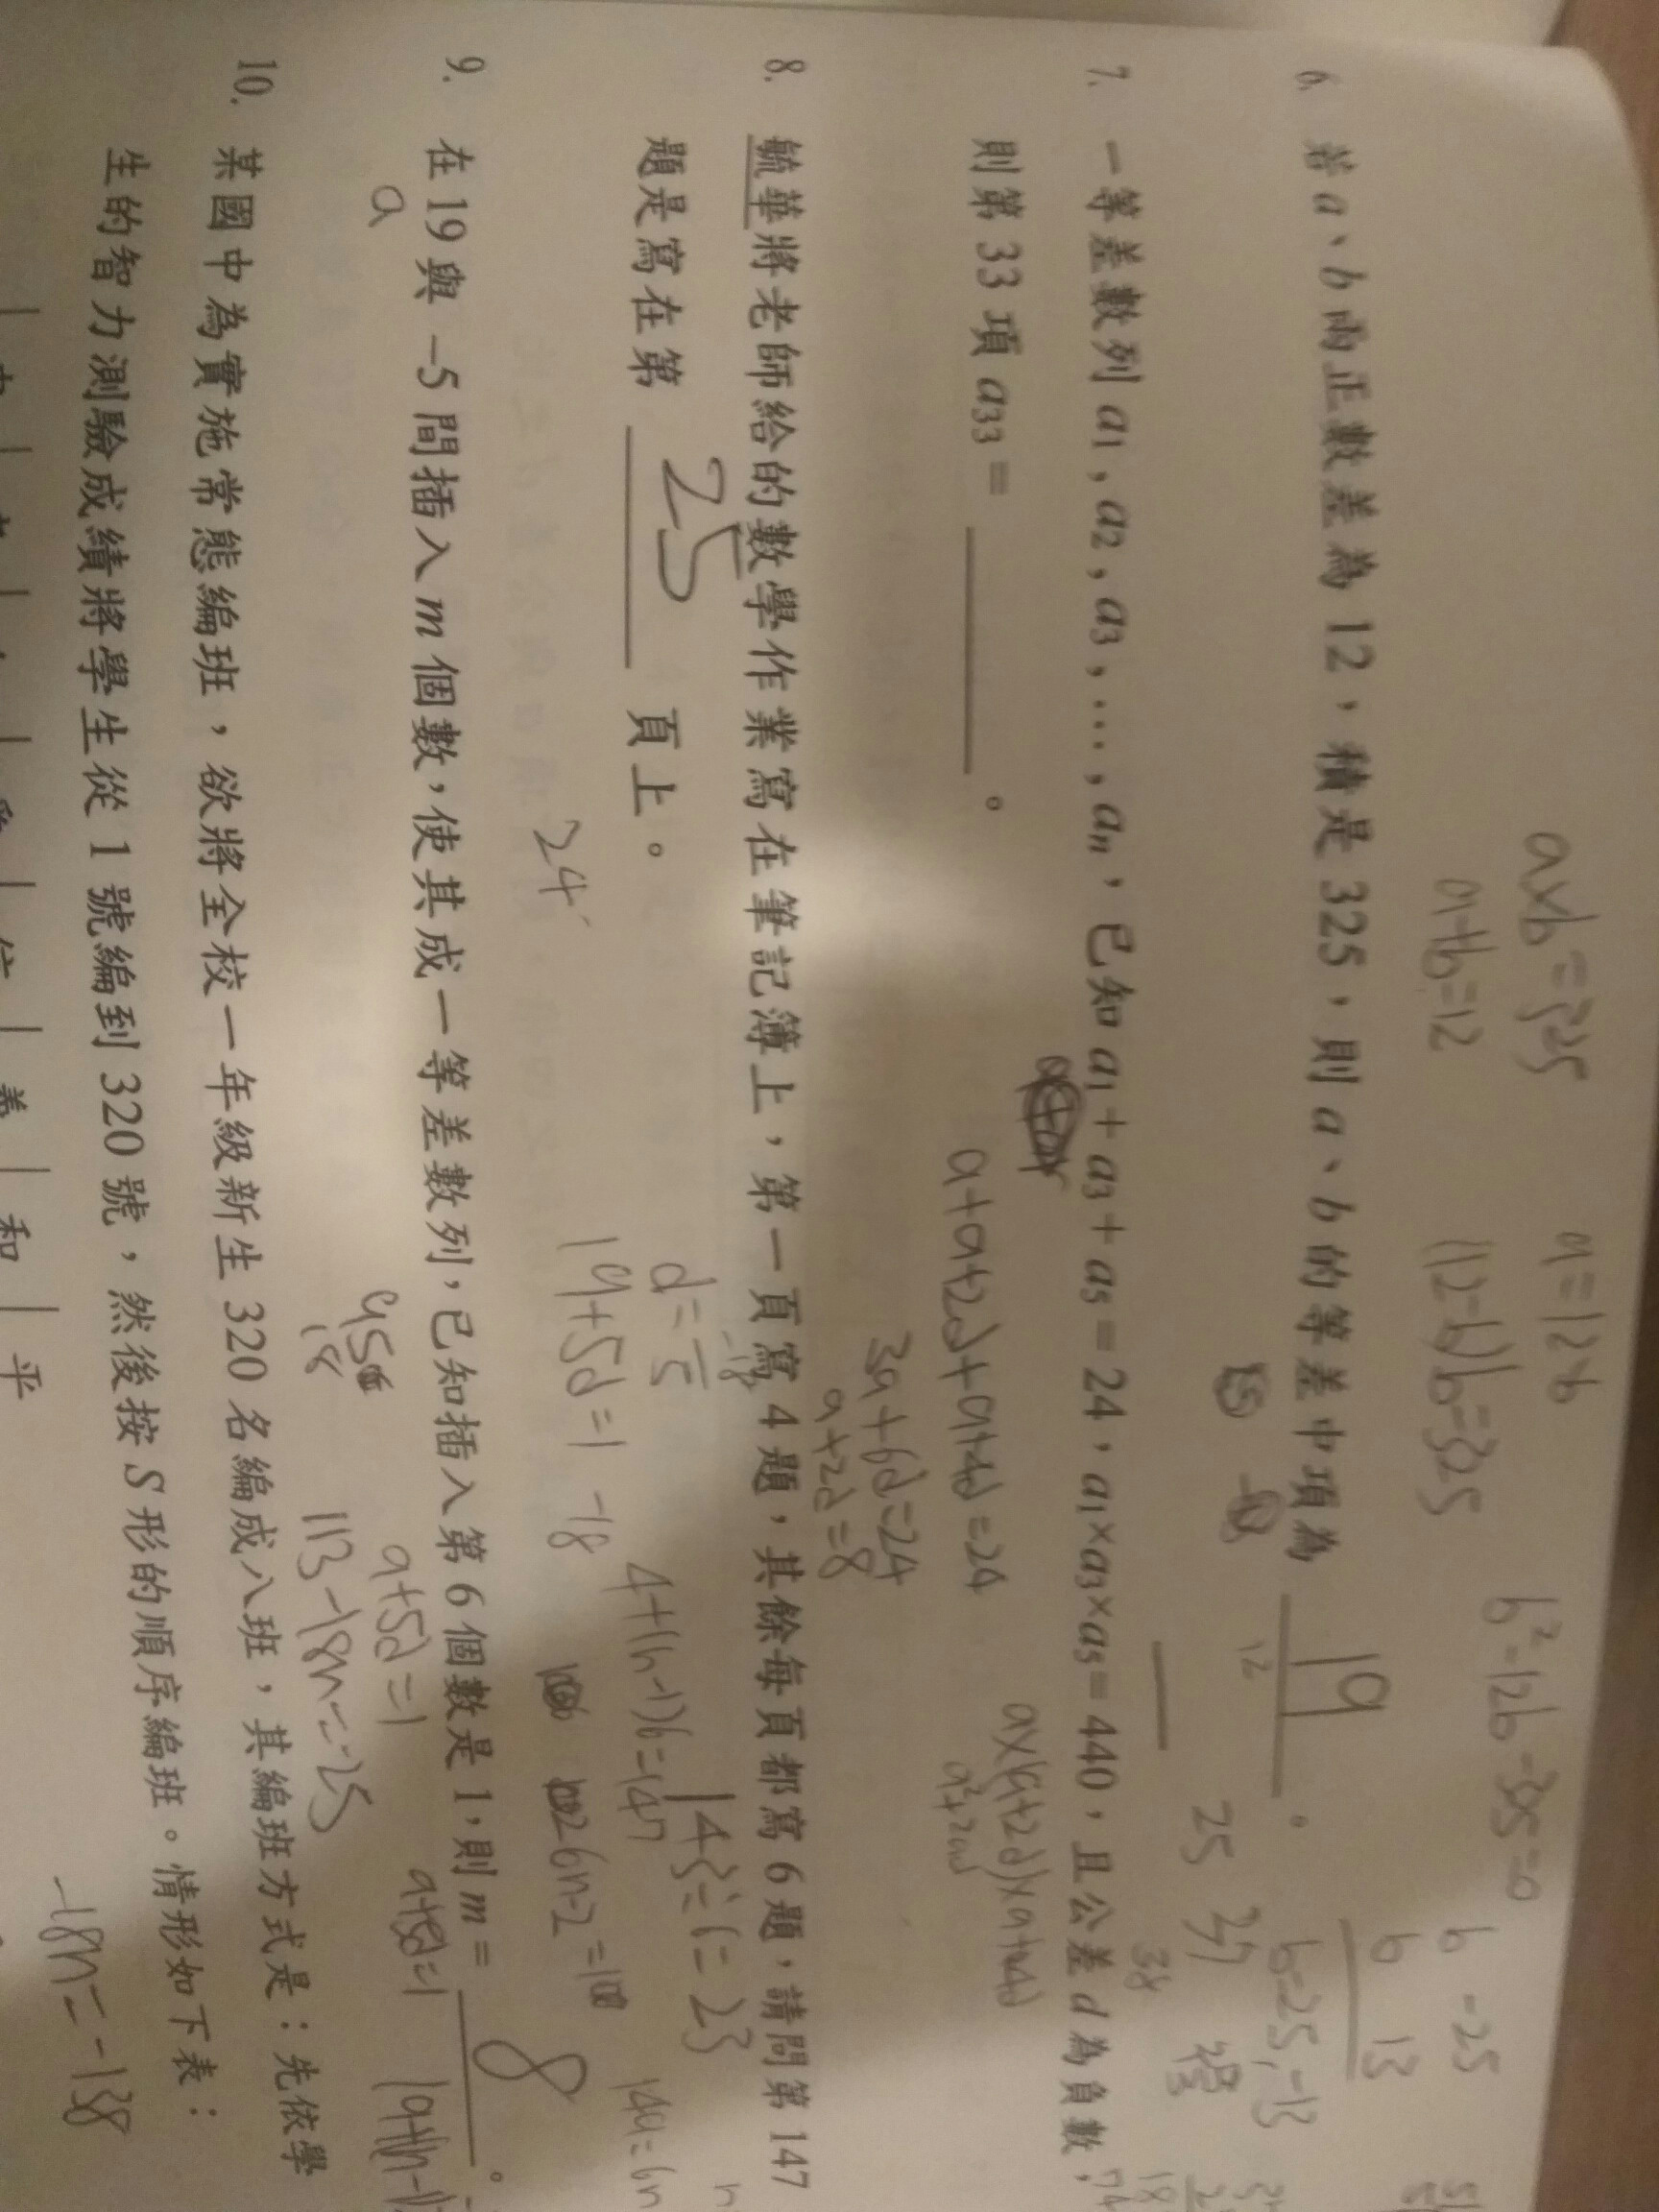 a×b=325
a+b=12
a=12-b
(12-b)b=325
6. 若 a、b 兩正數差為 12，積是 325，則 a、b 的等差中項為 19。
b=25,-13
25
7. 一等差數列 a1,a2,a3,…,an，已知 a1+a3+a5=24，a1×a3×a5=440，且公差 d 為負數，
則第 33 項 a33=＿＿＿。
a+a+2d+a+4d=24
3a+6d=24
a+2d=8
8. 毓華將老師給的數學作業寫在筆記簿上，第一頁寫 4 題，其餘每頁都寫 6 題，請問第 147
題是寫在第 25 頁上。
24
19+5d=1
-18
4+(n-1)6=147
143÷6=23
9. 在 19 與 -5 間插入 m 個數，使其成一等差數列，已知插入第 6 個數是 1，則 m= 8。
a
a+5d=1
113-18n=-25
-18n=-138
10. 某國中為實施常態編班，欲將全校一年級新生 320 名編成八班，其編班方式是：先依學
生的智力測驗成績將學生從 1 號編到 320 號，然後按 S 形的順序編班。情形如下表：
和 平